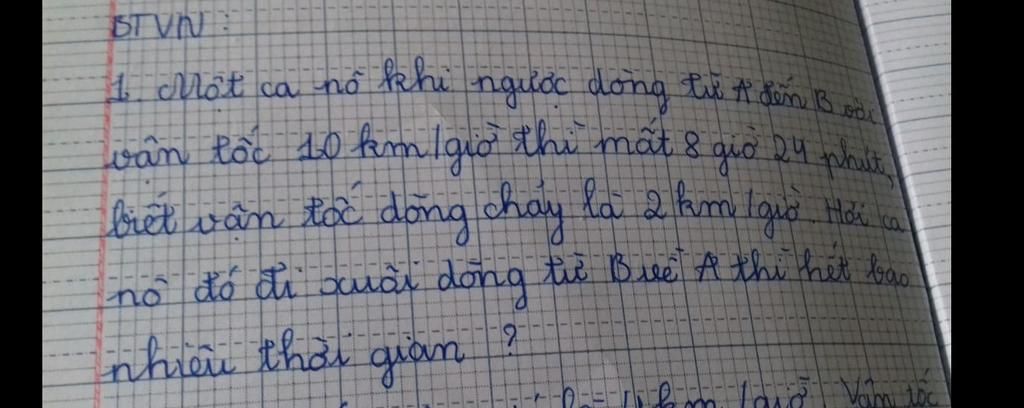 BTVN:
1. Một ca nô khi ngược dòng từ A đến B với
vận tốc 10 km/giờ thì mất 8 giờ 24 phút,
biết vận tốc dòng chảy là 2 km/giờ. Hỏi ca
nô đó đi xuôi dòng từ B về A thì hết bao
nhiêu thời gian ?
km/giờ. Vận tốc